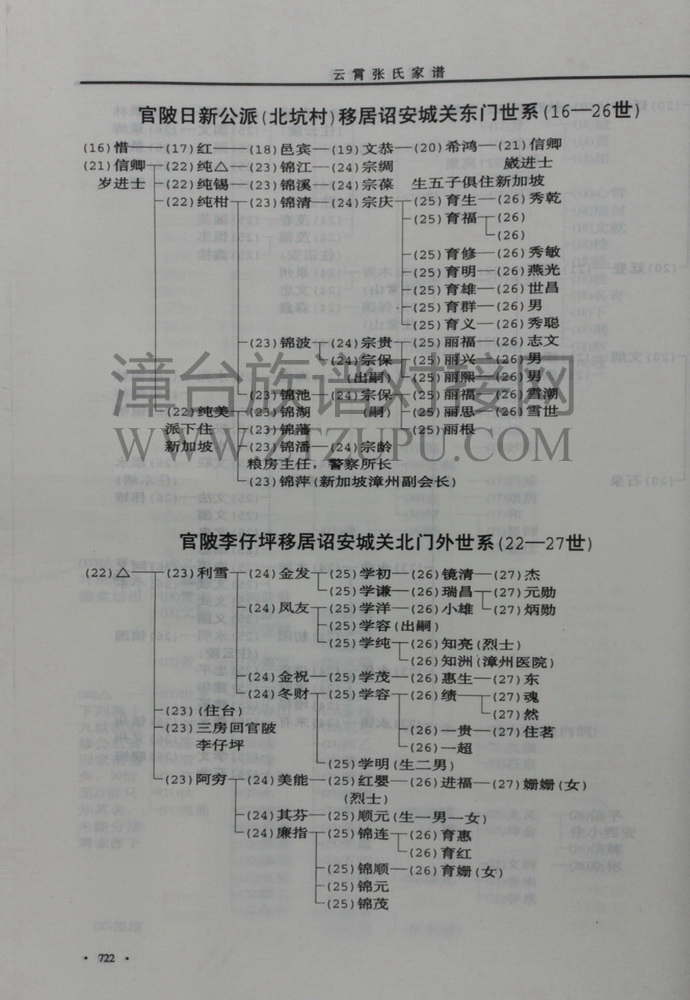 云霄张氏家谱
官陂日新公派(北坑村)移居诏安城关东门世系(16—26世)
(16)惜——(17)红——(18)邑宾—(19)文恭—(20)希鸿—(21)信卿
(21)信卿 (22)纯△—(23)锦江—(24)宗绸 崴进士
岁进士 (22)纯锡—(23)锦溪—(24)宗葆 生五子俱住新加坡
(22)纯柑 (23)锦清—(24)宗庆 (25)育生—(26)秀乾
(25)育福 (26)
(26)
(25)育修—(26)秀敏
(25)育明—(26)燕光
(25)育雄—(26)世昌
(25)育群—(26)男
(25)育义—(26)秀聪
(23)锦波 (24)宗贵 (25)丽福—(26)志文
(24)宗保 (25)丽兴—(26)男
(出嗣) (25)丽熙—(26)男
(23)锦池—(24)宗保 (25)丽福—(26)雪潮
(22)纯美 (23)锦湖 (嗣) (25)丽思—(26)雪世
派下住 (23)锦藩 (25)丽根
新加坡 (23)锦潘—(24)宗龄
粮房主任，警察所长
(23)锦萍(新加坡漳州副会长)
官陂李仔坪移居诏安城关北门外世系(22—27世)
(22)△ (23)利雪 (24)金发 (25)学初—(26)镜清—(27)杰
(25)学谦—(26)瑞昌 (27)元勋
(24)凤友 (25)学洋—(26)小雄 (27)炳勋
(25)学容(出嗣)
(25)学纯 (26)知亮(烈士)
(26)知洲(漳州医院)
(24)金祝—(25)学茂—(26)惠生—(27)东
(24)冬财 (25)学容 (26)绩 (27)魂
(23)(住台) (27)然
(23)三房回官陂 (26)一贵—(27)住茗
李仔坪 (26)一超
(25)学明(生二男)
(23)阿穷 (24)美能—(25)红婴—(26)进福—(27)姗姗(女)
(烈士)
(24)其芬—(25)顺元(生一男一女)
(24)廉指 (25)锦连 (26)育惠
(26)育红
(25)锦顺—(26)育姗(女)
(25)锦元
(25)锦茂
·722·
漳台族谱对接网
WWW.ZTZUPU.COM